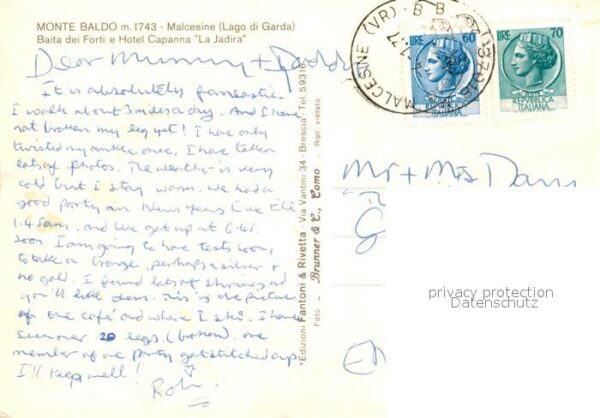 MONTE BALDO m. 1743 - Malcesine (Lago di Garda)
Baita dei Forti e Hotel Capanna "La Jadira"
Dear Mummy + Daddy
It is absolutely fantastic.
I walk about 3 miles a day. And I have
not broken my leg yet! I have only
twisted my ankle once. I have taken
lots of photos. The weather is very
cold but I stay warm. We had a
good party on New Years Eve till
1.45am. and We get up at 6.45.
Soon I am going to have tests soon,
to take a bronze, perhaps a silver +
no gold. I found lots of shrines and
you'll like them. This is the picture
of the café and where I ski. I have
20 legs. (broken). one
member of our party got stitched up
I'll keep well!
Rob
Edizioni Fantoni & Rivetta - Via Vantini 34 - Brescia - Tel. 59316
Foto - Brunner & C., Como - Ripr. vietata
MALCESINE (VR)
37018
LIRE 60
REPUBBLICA
ITALIANA
LIRE 70
REPUBBLICA
ITALIANA
Mr + Mrs
privacy protection
Datenschutz